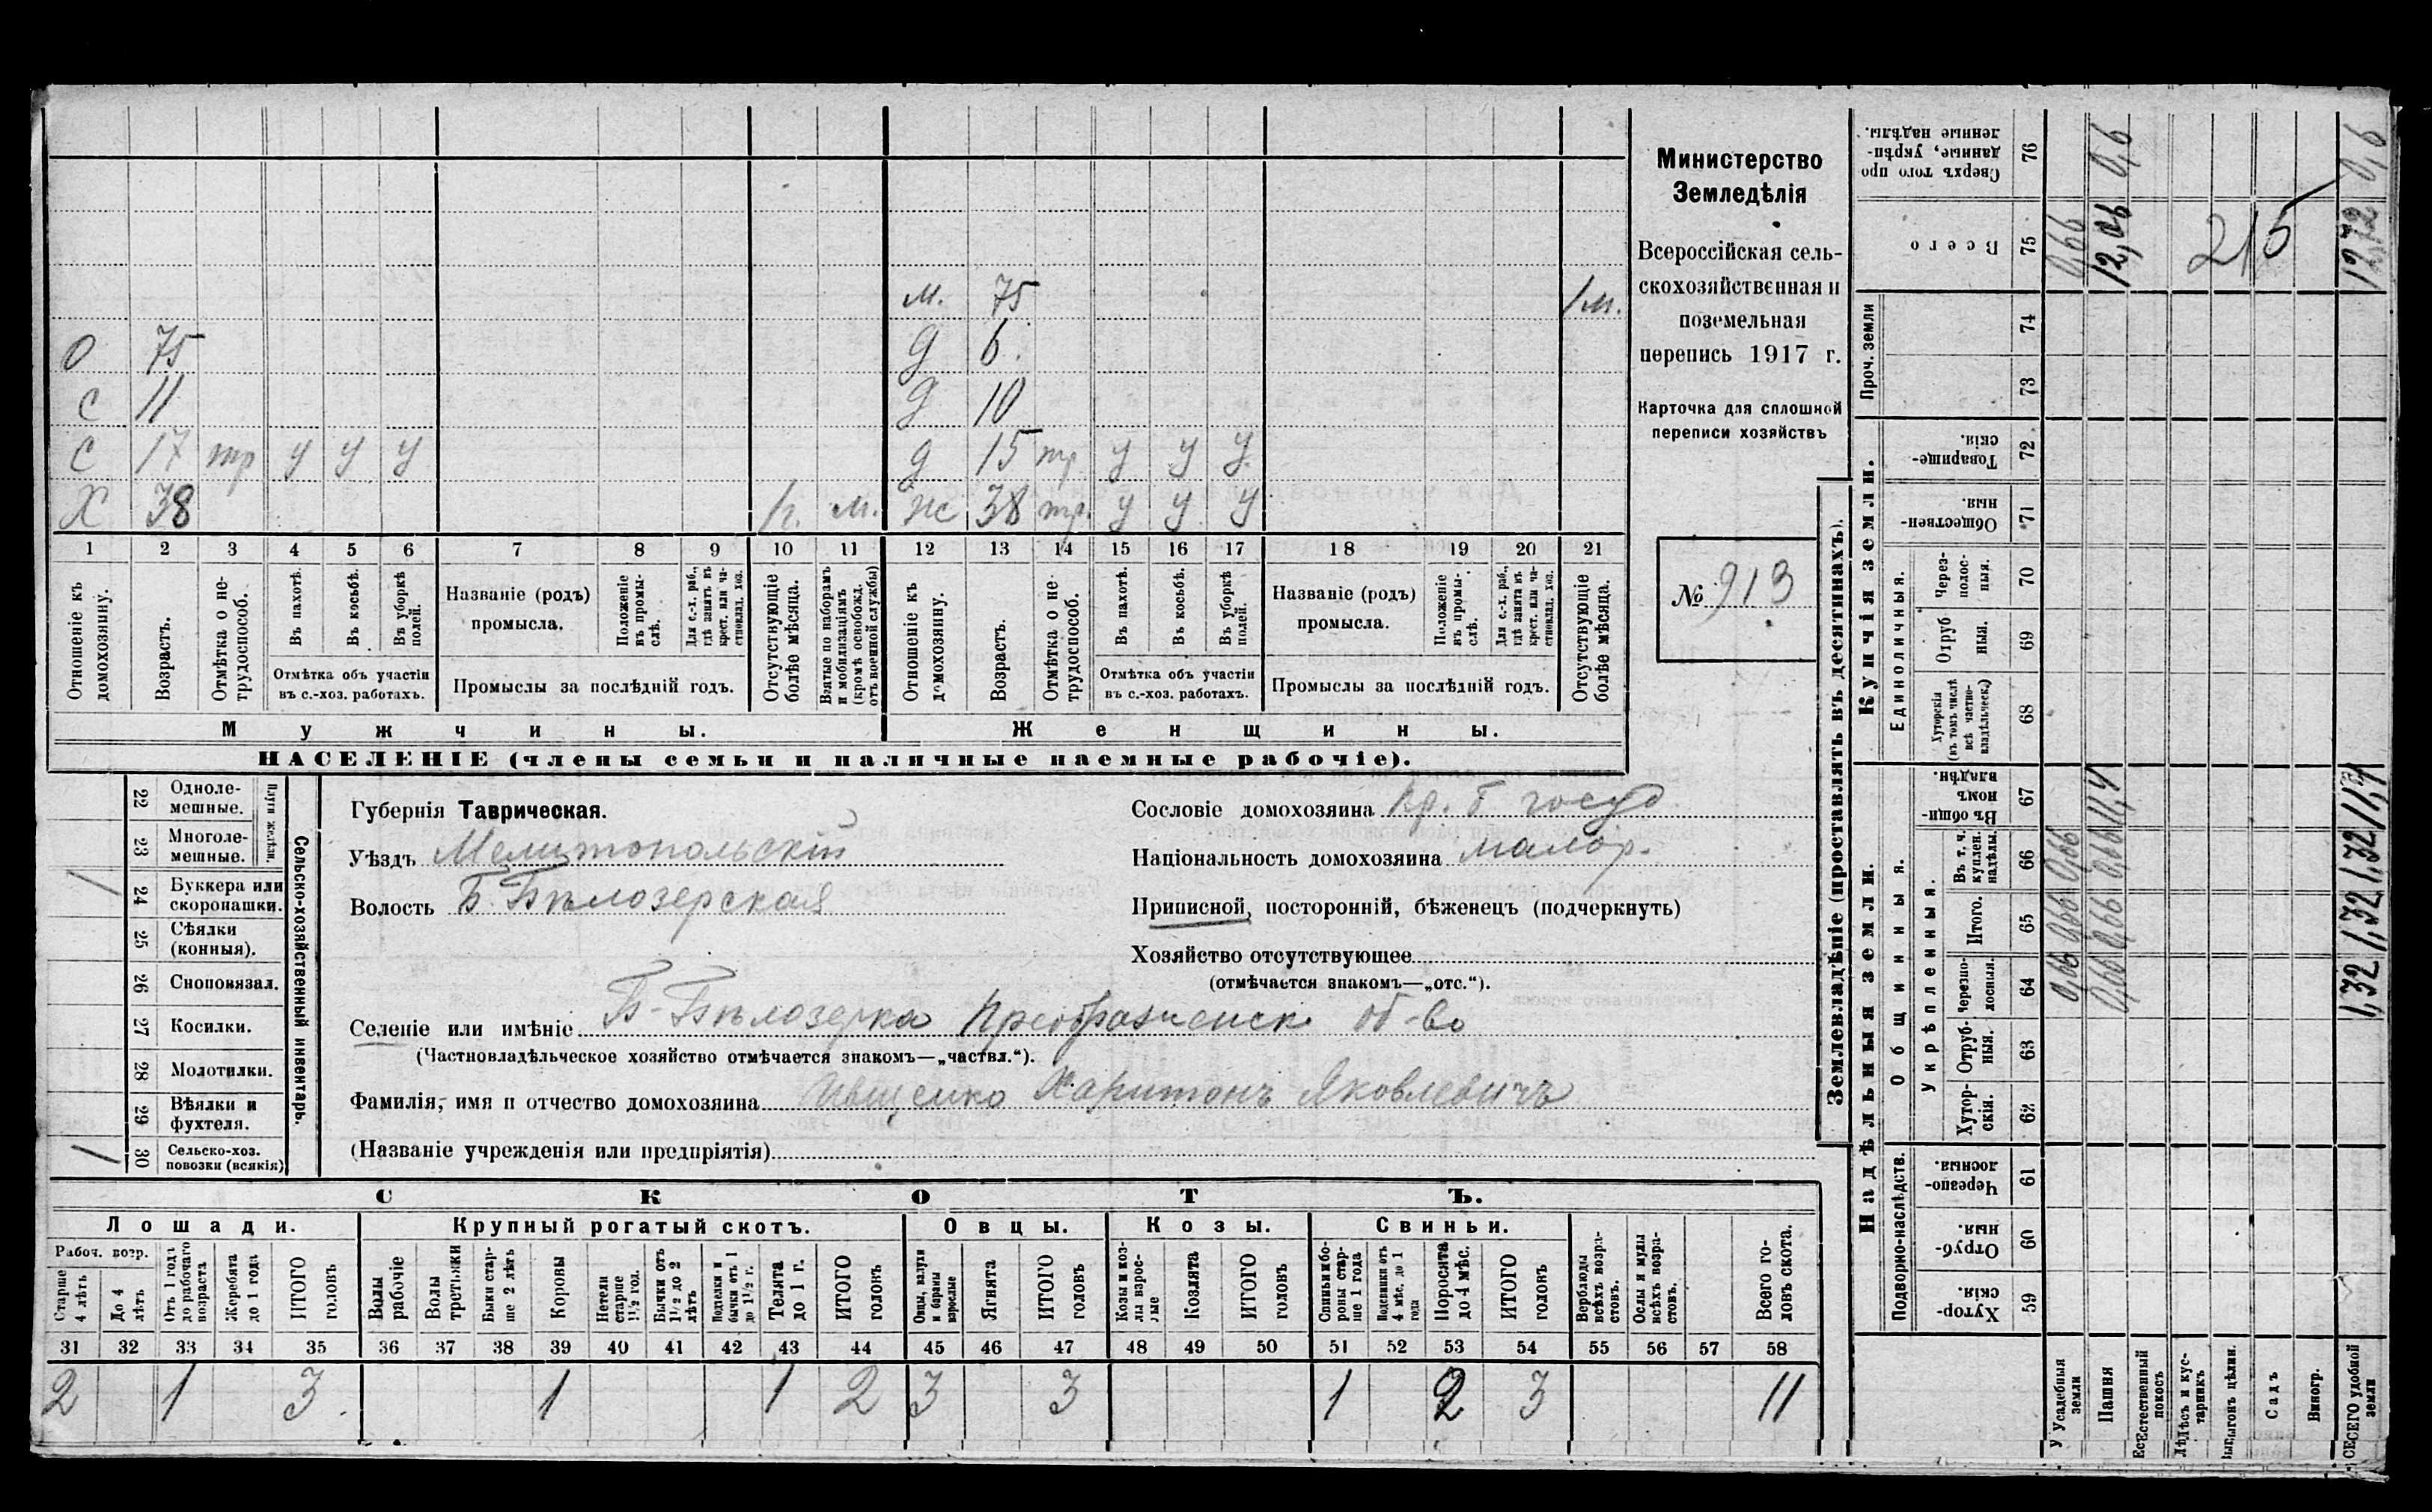 м. 75 1 м.
О 75 д 6.
С 11 д 10
С 17 тр у у у д 15 тр. у у у
Х 38 м. ж 38 тр. у у у
1 2 3 4 5 6 7 8 9 10 11 12 13 14 15 16 17 18 19 20 21
Отношеніе къ домохозяину.
Возрастъ.
Отмѣтка о не-трудоспособ.
Въ пахотѣ.
Въ косьбѣ.
Въ уборкѣ полей.
Отмѣтка объ участіи
въ с.-хоз. работахъ.
Названіе (родъ)
промысла.
Положеніе въ промы-слѣ.
Для с.-х. раб., гдѣ занятъ въ крест. или ча-стновлад. хоз.
Промыслы за послѣдній годъ.
Отсутствующіе болѣе мѣсяца.
Взятые по наборамъ и мобилизаціямъ (кромѣ освобожд. отъ военной службы)
Отношеніе къ домохозяину.
Возрастъ.
Отмѣтка о не трудоспособ.
Въ пахотѣ.
Въ косьбѣ.
Въ уборкѣ полей.
Отмѣтка объ участіи
въ с.-хоз. работахъ.
Названіе (родъ)
промысла.
Положеніе въ промы-слѣ.
Для с.-х. раб., гдѣ занята въ крест. или ча-стновлад. хоз.
Промыслы за послѣдній годъ.
Отсутствующіе болѣе мѣсяца.
Мужчины. Женщины.
НАСЕЛЕНІЕ (члены семьи и наличные наемные рабочіе).
Министерство
Земледѣлія
Всероссійская сель-
скохозяйственная и
поземельная
перепись 1917 г.
Карточка для сплошной
переписи хозяйствъ
№ 913
22 Одноле-мешные.
23 Многоле-мешные.
Плуги желѣзн.
1 24 Буккера или скоропашки.
25 Сѣялки (конныя).
26 Сноповязал.
27 Косилки.
28 Молотилки.
29 Вѣялки и фухтеля.
1 30 Сельско-хоз. повозки (всякія)
Сельско-хозяйственный инвентарь.
Губернія Таврическая.
Уѣздъ Мелитопольскій
Волость Б. Бѣлозерская
Сословіе домохозяина кр. б. госуд
Національность домохозяина малор.
Приписной, посторонній, бѣженецъ (подчеркнуть)
Хозяйство отсутствующее
(отмѣчается знакомъ—„отс.“).
Селеніе или имѣніе Б-Бѣлозерка Преображенск об-во
(Частновладѣльческое хозяйство отмѣчается знакомъ—„частвл.“).
Фамилія, имя и отчество домохозяина Ивщенко Харитонъ Яковлевичъ
(Названіе учрежденія или предпріятія)
СКОТЪ.
Лошади. Крупный рогатый скотъ. Овцы. Козы. Свиньи.
Рабоч. возр.
Старше 4 лѣтъ
До 4 лѣтъ
Отъ 1 года до рабочаго возраста
Жеребята до 1 года
ИТОГО головъ
Волы рабочіе
Волы третьяки
Быки стар-ше 2 лѣтъ
Коровы
Нетели старше 1½ год.
Бычки отъ 1½ до 2 лѣтъ
Подтелки и бычки отъ 1 до 1½ г.
Телята до 1 г.
ИТОГО головъ
Овцы, валухи и бараны взрослые
Ягнята
ИТОГО головъ
Козы и коз-лы взрос-лые
Козлята
ИТОГО головъ
Свиньи и бо-ровы стар-ше 1 года
Подсвинки отъ 4 мѣс. до 1 года
Поросята до 4 мѣс.
ИТОГО головъ
Верблюды всѣхъ возра-стовъ.
Ослы и мулы всѣхъ возра-стовъ.
Всего го-ловъ скота.
31 32 33 34 35 36 37 38 39 40 41 42 43 44 45 46 47 48 49 50 51 52 53 54 55 56 57 58
2 1 3 1 1 2 3 3 1 2 3 11
Землевладѣніе (проставлять въ десятинахъ).
Надѣльныя земли. Купчія земли. Проч. земли
Подворно-наслѣдств. Общинныя. Единоличныя.
Укрѣпленныя.
Хутор-скія. 59
Отруб-ныя. 60
Черезпо-лосныя. 61
Хутор-скія. 62
Отруб-ныя. 63
Черезпо-лосныя. 64
Итого. 65
Въ т. ч. куплен. надѣлы. 66
Въ общин-номъ владѣн. 67
Хуторскія (въ томъ числѣ всѣ частно-владѣльческ.) 68
Отруб ныя. 69
Через-полос-ныя. 70
Обществен-ныя. 71
Товарище-скія. 72
73
74
Всего 75
Сверхъ того про данные, укрѣп-ленные надѣлы. 76
Усадебныя земли 0,66 0,66 0,66 0,66
Пашня 0,66 0,66 0,66 11,4 12,06 0,6
Естественный покосъ
Лѣсъ и кус-тарникъ
Выгонъ цѣлин.
Садъ
Виногр.
215
ВСЕГО удобной земли 1,32 1,32 1,32 11,4 12,72 0,6